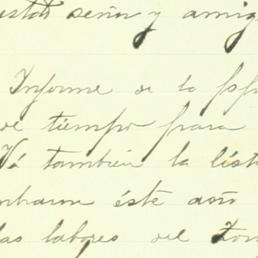 señor y amig
Informe de la
de tiempo para
Vá también la lista
éste año
las labores del